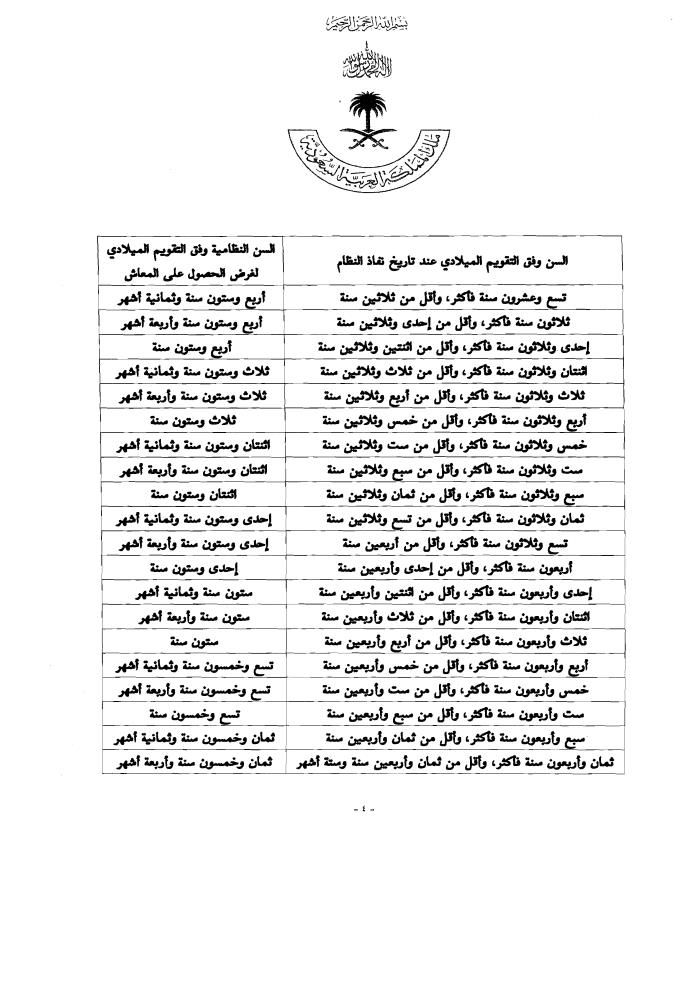 بسم الله الرحمن الرحيم
لا إله إلا الله محمد رسول الله
ملك المملكة العربية السعودية
السن وفق التقويم الميلادي عند تاريخ نفاذ النظام
السن النظامية وفق التقويم الميلادي
لغرض الحصول على المعاش
تسع وعشرون سنة فأكثر، وأقل من ثلاثين سنة أربع وستون سنة وثمانية أشهر
ثلاثون سنة فأكثر، وأقل من إحدى وثلاثين سنة أربع وستون سنة وأربعة أشهر
إحدى وثلاثون سنة فأكثر، وأقل من اثنتين وثلاثين سنة أربع وستون سنة
اثنتان وثلاثون سنة فأكثر، وأقل من ثلاث وثلاثين سنة ثلاث وستون سنة وثمانية أشهر
ثلاث وثلاثون سنة فأكثر، وأقل من أربع وثلاثين سنة ثلاث وستون سنة وأربعة أشهر
أربع وثلاثون سنة فأكثر، وأقل من خمس وثلاثين سنة ثلاث وستون سنة
خمس وثلاثون سنة فأكثر، وأقل من ست وثلاثين سنة اثنتان وستون سنة وثمانية أشهر
ست وثلاثون سنة فأكثر، وأقل من سبع وثلاثين سنة اثنتان وستون سنة وأربعة أشهر
سبع وثلاثون سنة فأكثر، وأقل من ثمان وثلاثين سنة اثنتان وستون سنة
ثمان وثلاثون سنة فأكثر، وأقل من تسع وثلاثين سنة إحدى وستون سنة وثمانية أشهر
تسع وثلاثون سنة فأكثر، وأقل من أربعين سنة إحدى وستون سنة وأربعة أشهر
أربعون سنة فأكثر، وأقل من إحدى وأربعين سنة إحدى وستون سنة
إحدى وأربعون سنة فأكثر، وأقل من اثنتين وأربعين سنة ستون سنة وثمانية أشهر
اثنتان وأربعون سنة فأكثر، وأقل من ثلاث وأربعين سنة ستون سنة وأربعة أشهر
ثلاث وأربعون سنة فأكثر، وأقل من أربع وأربعين سنة ستون سنة
أربع وأربعون سنة فأكثر، وأقل من خمس وأربعين سنة تسع وخمسون سنة وثمانية أشهر
خمس وأربعون سنة فأكثر، وأقل من ست وأربعين سنة تسع وخمسون سنة وأربعة أشهر
ست وأربعون سنة فأكثر، وأقل من سبع وأربعين سنة تسع وخمسون سنة
سبع وأربعون سنة فأكثر، وأقل من ثمان وأربعين سنة ثمان وخمسون سنة وثمانية أشهر
ثمان وأربعون سنة فأكثر، وأقل من ثمان وأربعين سنة وستة أشهر ثمان وخمسون سنة وأربعة أشهر
- ٤ -